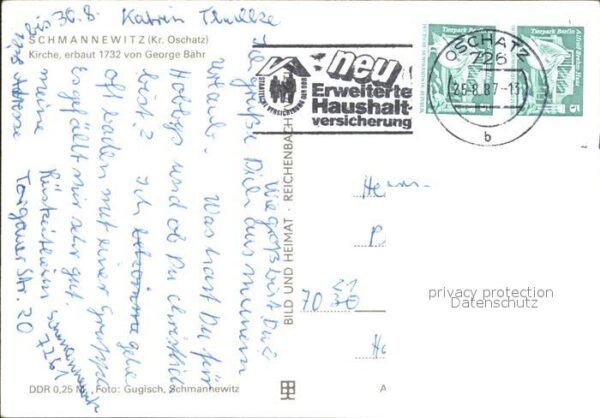 bis 30.8. Katrin
SCHMANNEWITZ (Kr. Oschatz)
Kirche, erbaut 1732 von George Bähr
Ich grüße Dich aus meinem
Urlaub. Was hast Du für
Hobbys und ob Du christlich
bist? Ich gehe
oft baden mit einer Gruppe
Es gefällt mir sehr gut.
meine
Rüstzeitheim Schmannewitz
7261
Torgauer Str. 20
Wie groß bist Du?
BILD UND HEIMAT · REICHENBACH
STAATLICHE VERSICHERUNG DER DDR
neu
Erweiterte
Haushalt-
versicherung
OSCHATZ
726
25.8.87-13
b
Tierpark Berlin
Alfred-Brehm-Haus
5
Tierpark Berlin
Herrn
70
21
privacy protection
Datenschutz
DDR 0,25 M, Foto: Gugisch, Schmannewitz
A